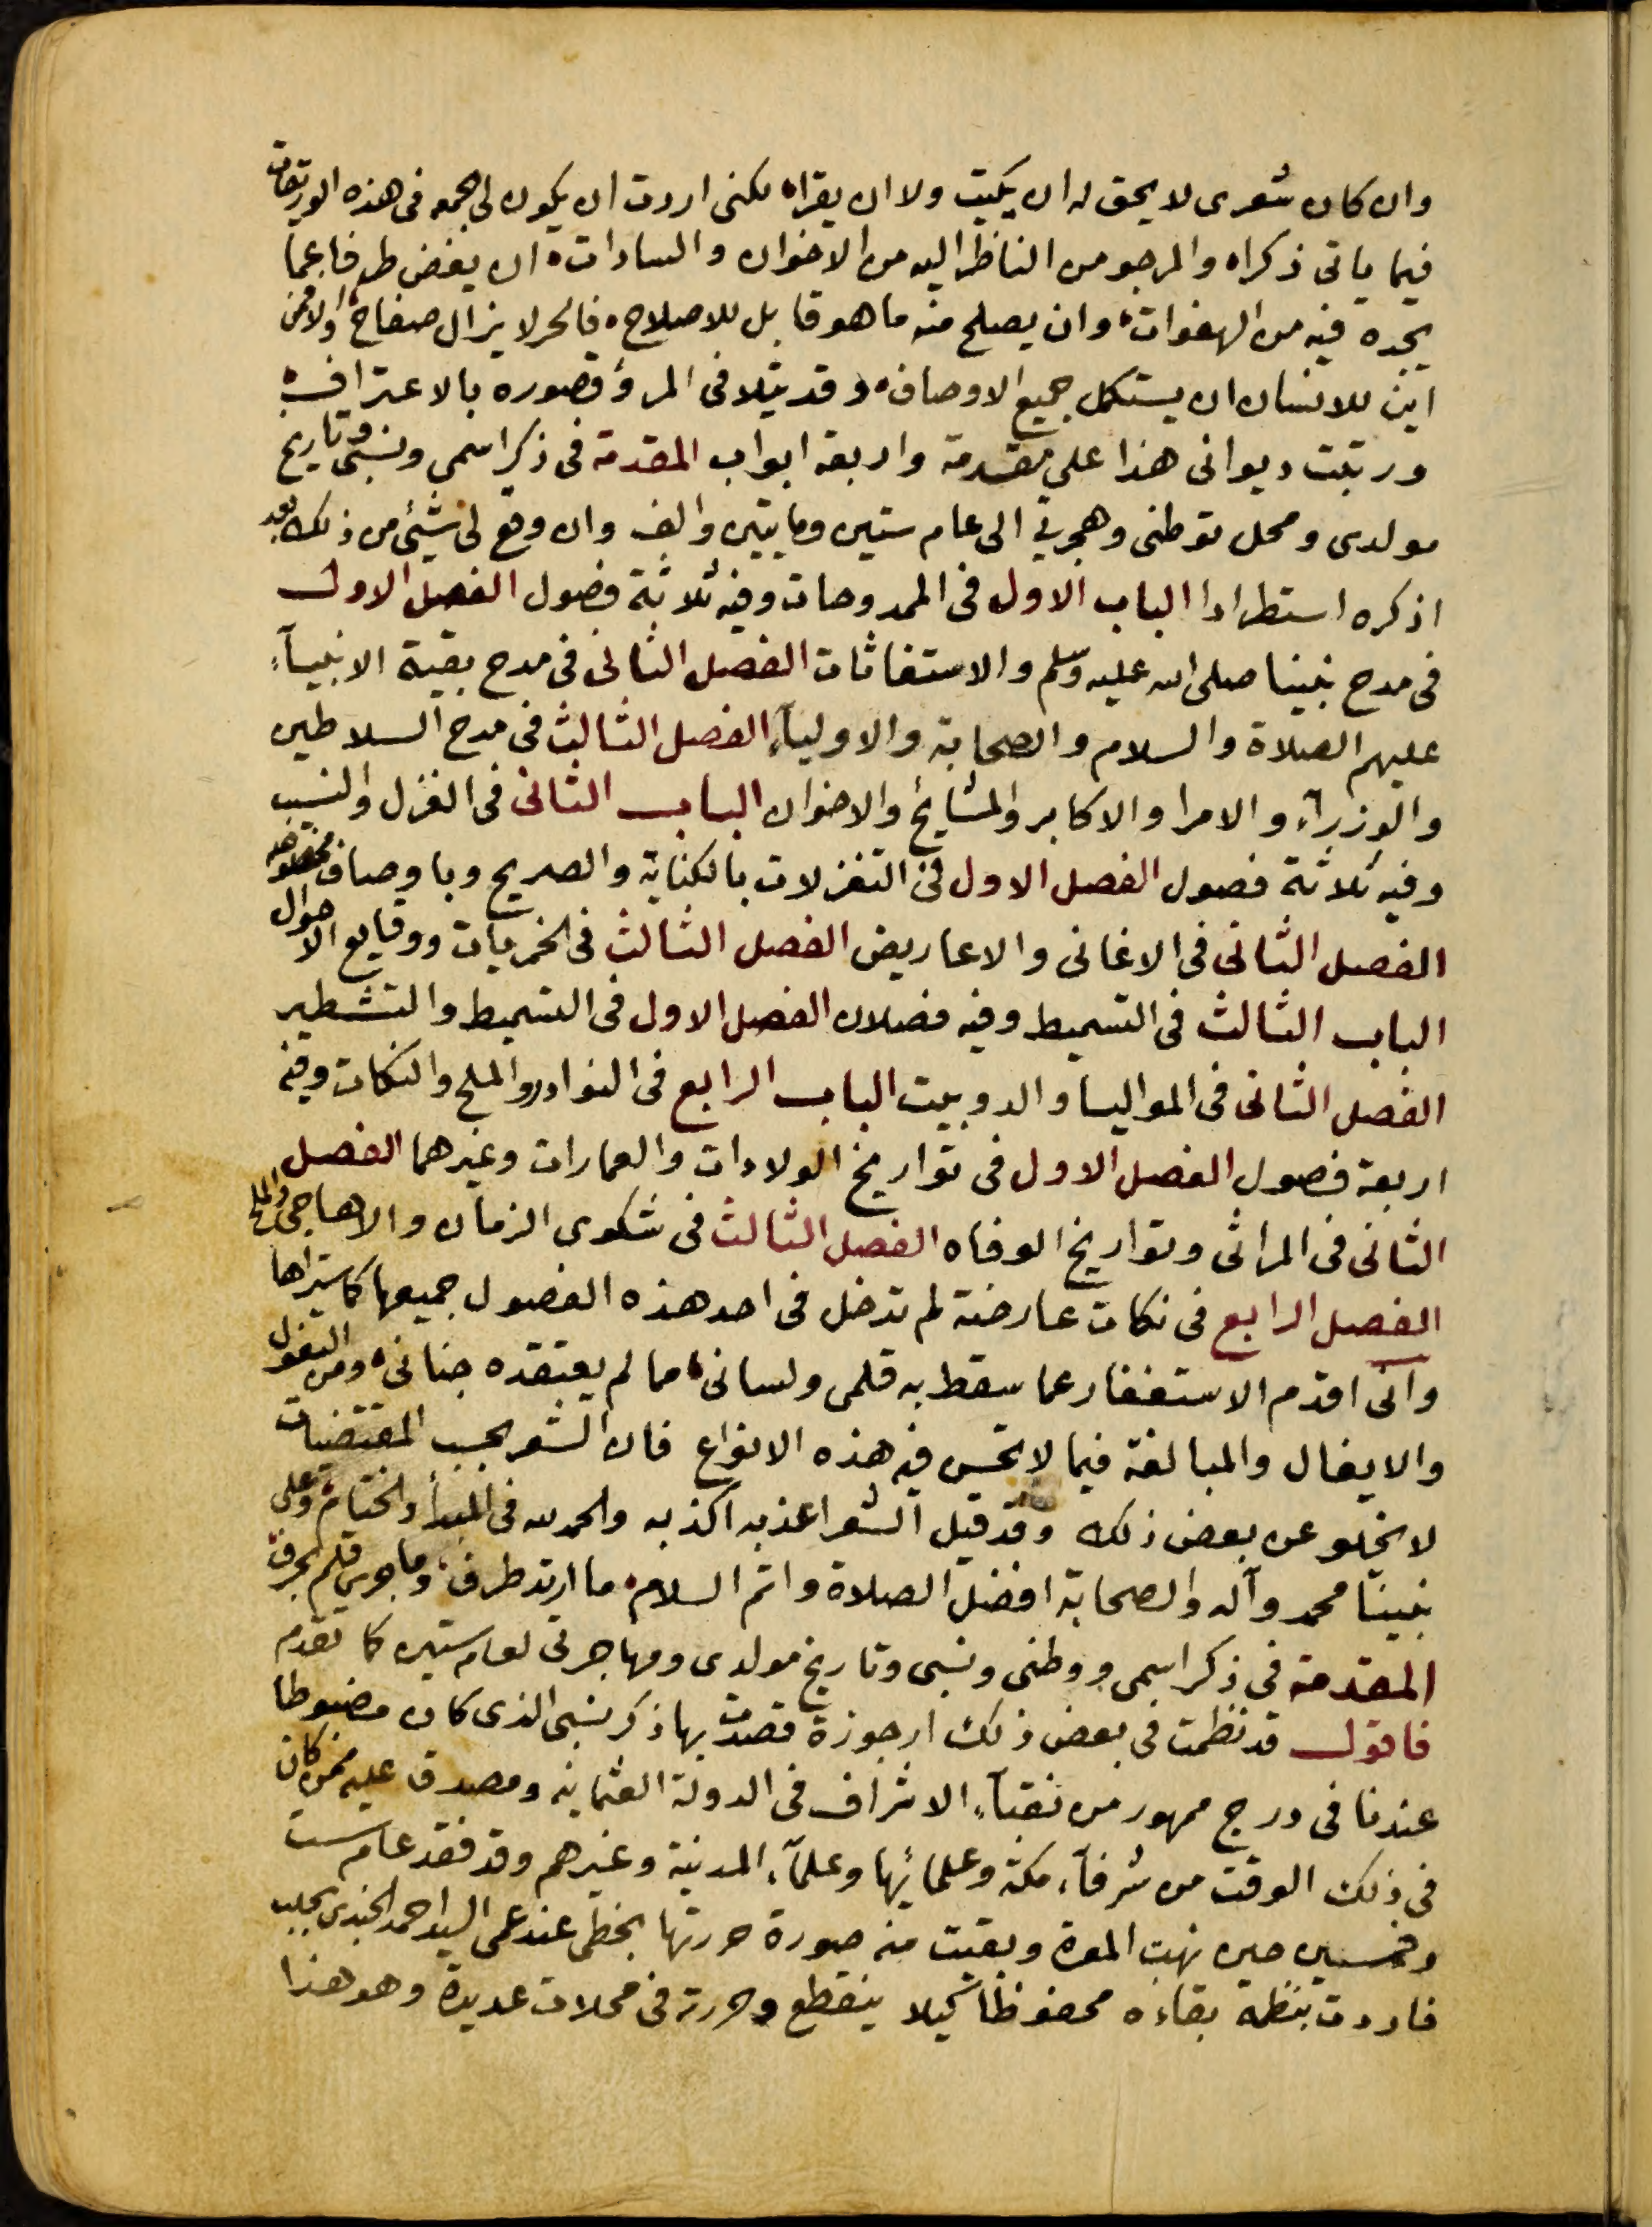 وان كان شعرى لا يحق له ان يكتب ولا ان يقراه لكنى اردت ان يكون لى اجمعه فى هذه الوريقات
فيما ياتى ذكراه والمرجو من الناظر اليه من الاخوان والسادات ان يغض طرفا عما
يجده فيه من الهفوات وان يصلح منه ما هو قابل للاصلاح فالحر لا يزال صفاح ولا
اين للانسان ان يستكمل جميع الاوصاف وقد يتلافى المرؤ قصوره بالاعتراف
ورتبت ديوانى هذا على مقدمة واربعة ابواب المقدمة فى ذكر اسمى ونسبى وتاريخ
مولدى ومحل توطنى وهجرتى الى عام ستين ومايتين والف وان وقع لى شيئ من ذلك بعد
اذكره استطرادا الباب الاول فى الممدوحات وفيه ثلاثة فصول الفصل الاول
فى مدح نبينا صلى الله عليه وسلم والاستغاثات الفصل الثانى فى مدح بقية الانبيآء
عليهم الصلاة والسلام والصحابة والاوليآء الفصل الثالث فى مدح السلاطين
والوزرآء والامرا والاكابر والمشايخ والاخوان الباب الثانى فى الغزل والنسيب
وفيه ثلاثة فصول الفصل الاول فى التغزلات بالكناية والصريح وباوصاف مخصوصه
الفصل الثانى فى الاغانى والاعاريض الفصل الثالث فى الخمريات ووقايع الاحوال
الباب الثالث فى التسميط وفيه فصلان الفصل الاول فى التسميط والتشطير
الفصل الثانى فى المواليا والدوبيت الباب الرابع فى النوادر والملح والنكات وفيه
اربعة فصول الفصل الاول فى تواريخ الولادات والعمارات وغيرهما الفصل
الثانى فى المراثى وتواريخ الوفاه الفصل الثالث فى شكوى الزمان والاهاجى والملح
الفصل الرابع فى نكات عارضة لم تدخل فى احد هذه الفصول جميعها كما ستراها
وانى اقدم الاستغفار عما سقط به قلمى ولسانى مما لم يعتقده جنانى ومن التغزل
والايغال والمبالغة فيما لا تحسن فيه هذه الانواع فان الشعر بحسب المقتضيات
لا يخلو عن بعض ذلك وقد قيل الشعر اعذبه اكذبه والحمد لله فى المبدأ والختام وعلى
نبينا محمد وآله والصحابة افضل الصلاة واتم السلام ما ارتد طرف وما جرى قلم بحرف
المقدمة فى ذكر اسمى ووطنى ونسبى وتاريخ مولدى ومهاجرتى لعام ستين كما تقدم
فاقول قد نظمت فى بعض ذلك ارجوزة قصدت بها ذكر نسبى الذى كان مضبوطا
عندنا فى درج ممهور من نقبآء الاشراف فى الدولة العثمانيه ومصدق عليه ممن كان
فى ذلك الوقت من شرفآء مكة وعلمائها وعلمآء المدينة وغيرهم وقد فقد عام ست
وخمسين حين نهبت المعرة وبقيت منه صورة حررتها بخطى عند عمى السيد احمد الجندى بحلب
فاردت بنظمه بقاءه محفوظا كيلا ينقطع وحررته فى محلات عديدة وهو هذا